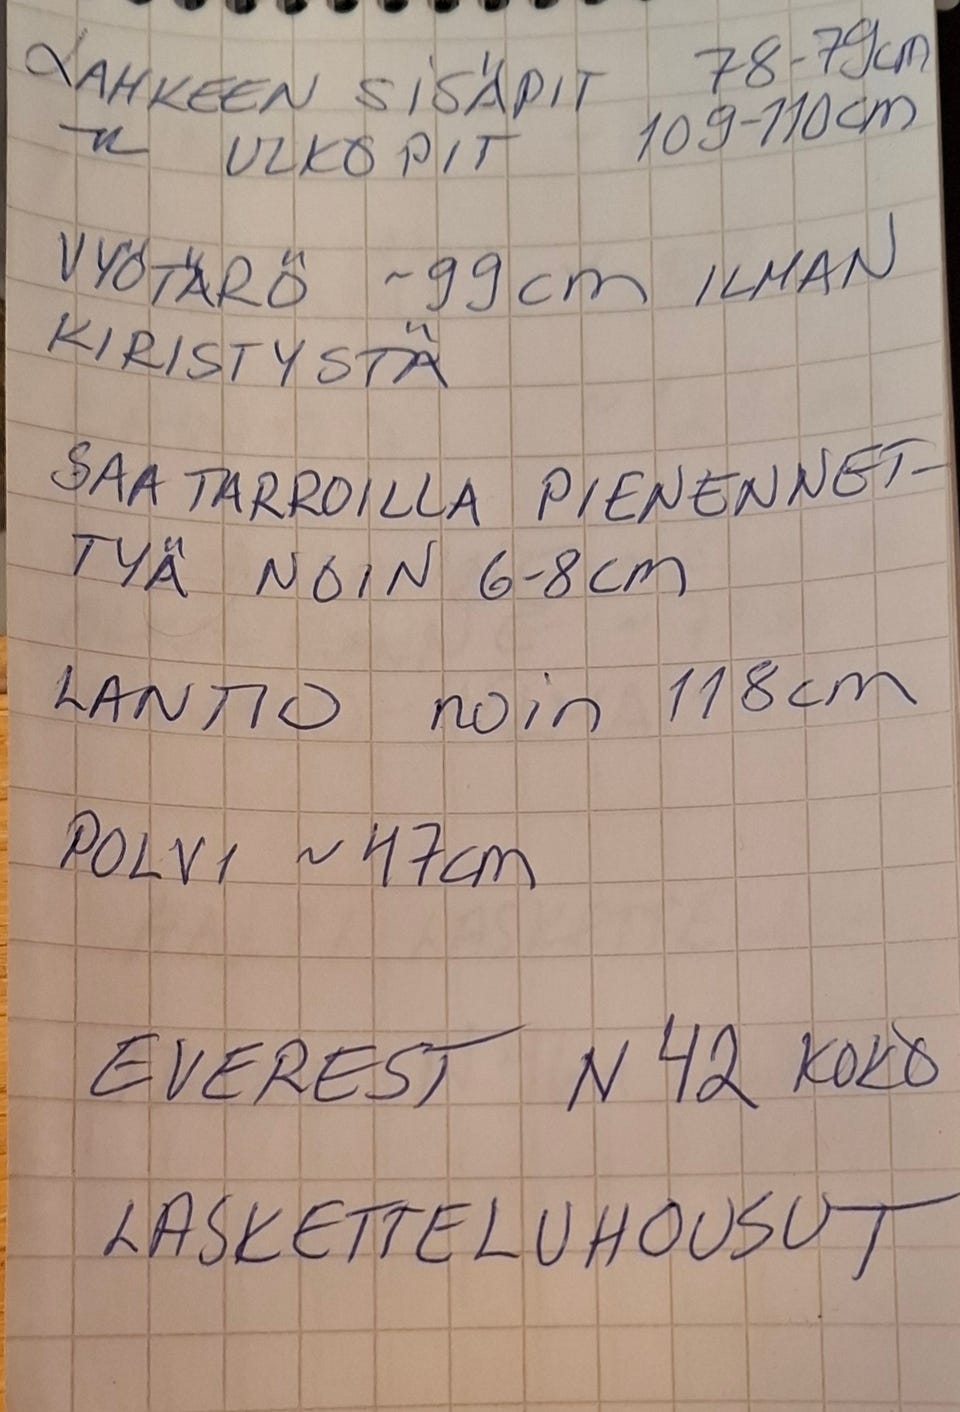 LAHKEEN SISÄPIT 78-79cm
-"- ULKOPIT 109-110cm
VYÖTÄRÖ ~99cm ILMAN
KIRISTYSTÄ
SAA TARROILLA PIENENNET-
TYÄ NOIN 6-8cm
LANTIO noin 118cm
POLVI ~47cm
EVEREST N 42 KOKO
LASKETTELUHOUSUT